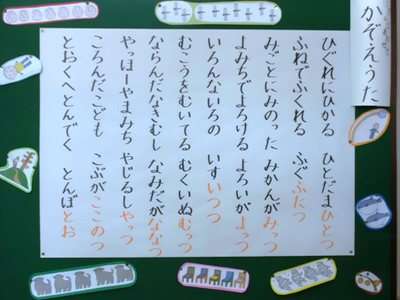 かぞえうた
ひぐれにひかる ひとだまひとつ
ふねでふくれる ふぐふたつ
みごとにみのった みかんがみっつ
よみちでよろける よろいがよっつ
いろんないろの いすいつつ
むこうをむいてる むくいぬむっつ
ならんだなきむし なみだがななつ
やっほーやまみち やじるしやっつ
ころんだこども こぶがここのつ
とおくへとんでく とんぼとお